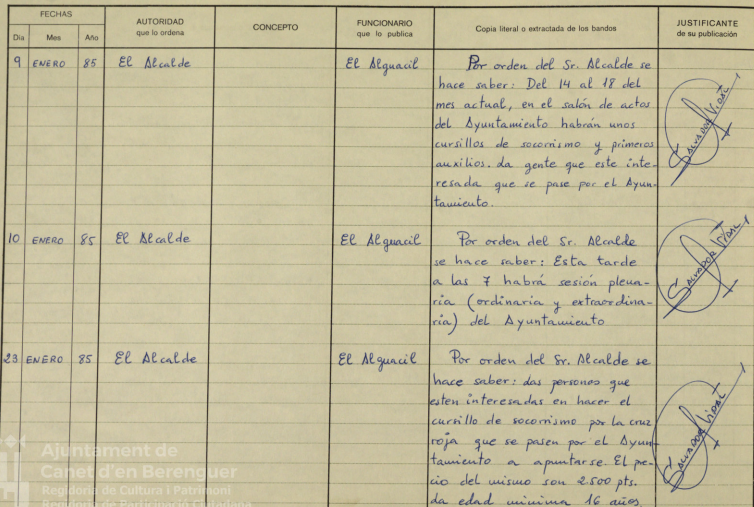 FECHAS
Día Mes Año
AUTORIDAD
que lo ordena
CONCEPTO
FUNCIONARIO
que lo publica
Copia literal o extractada de los bandos
JUSTIFICANTE
de su publicación
9 ENERO 85 El Alcalde El Alguacil Por orden del Sr. Alcalde se
hace saber: Del 14 al 18 del
mes actual, en el salón de actos
del Ayuntamiento habrán unos
cursillos de socorrismo y primeros
auxilios. La gente que este inte-
resada que se pase por el Ayun-
tamiento.
SALVADOR VIDAL
10 ENERO 85 El Alcalde El Alguacil Por orden del Sr. Alcalde
se hace saber: Esta tarde
a las 7 habrá sesión plena-
ria (ordinaria y extraordina-
ria) del Ayuntamiento
SALVADOR VIDAL
23 ENERO 85 El Alcalde El Alguacil Por orden del Sr. Alcalde se
hace saber: Las personas que
esten interesadas en hacer el
cursillo de socorrismo por la cruz
roja que se pasen por el Ayun-
tamiento a apuntarse. El pre-
cio del mismo son 2.500 pts.
La edad minima 16 años.
SALVADOR VIDAL
Ajuntament de
Canet d'en Berenguer
Regidoria de Cultura i Patrimoni
Regidoria de Participació Ciutadana